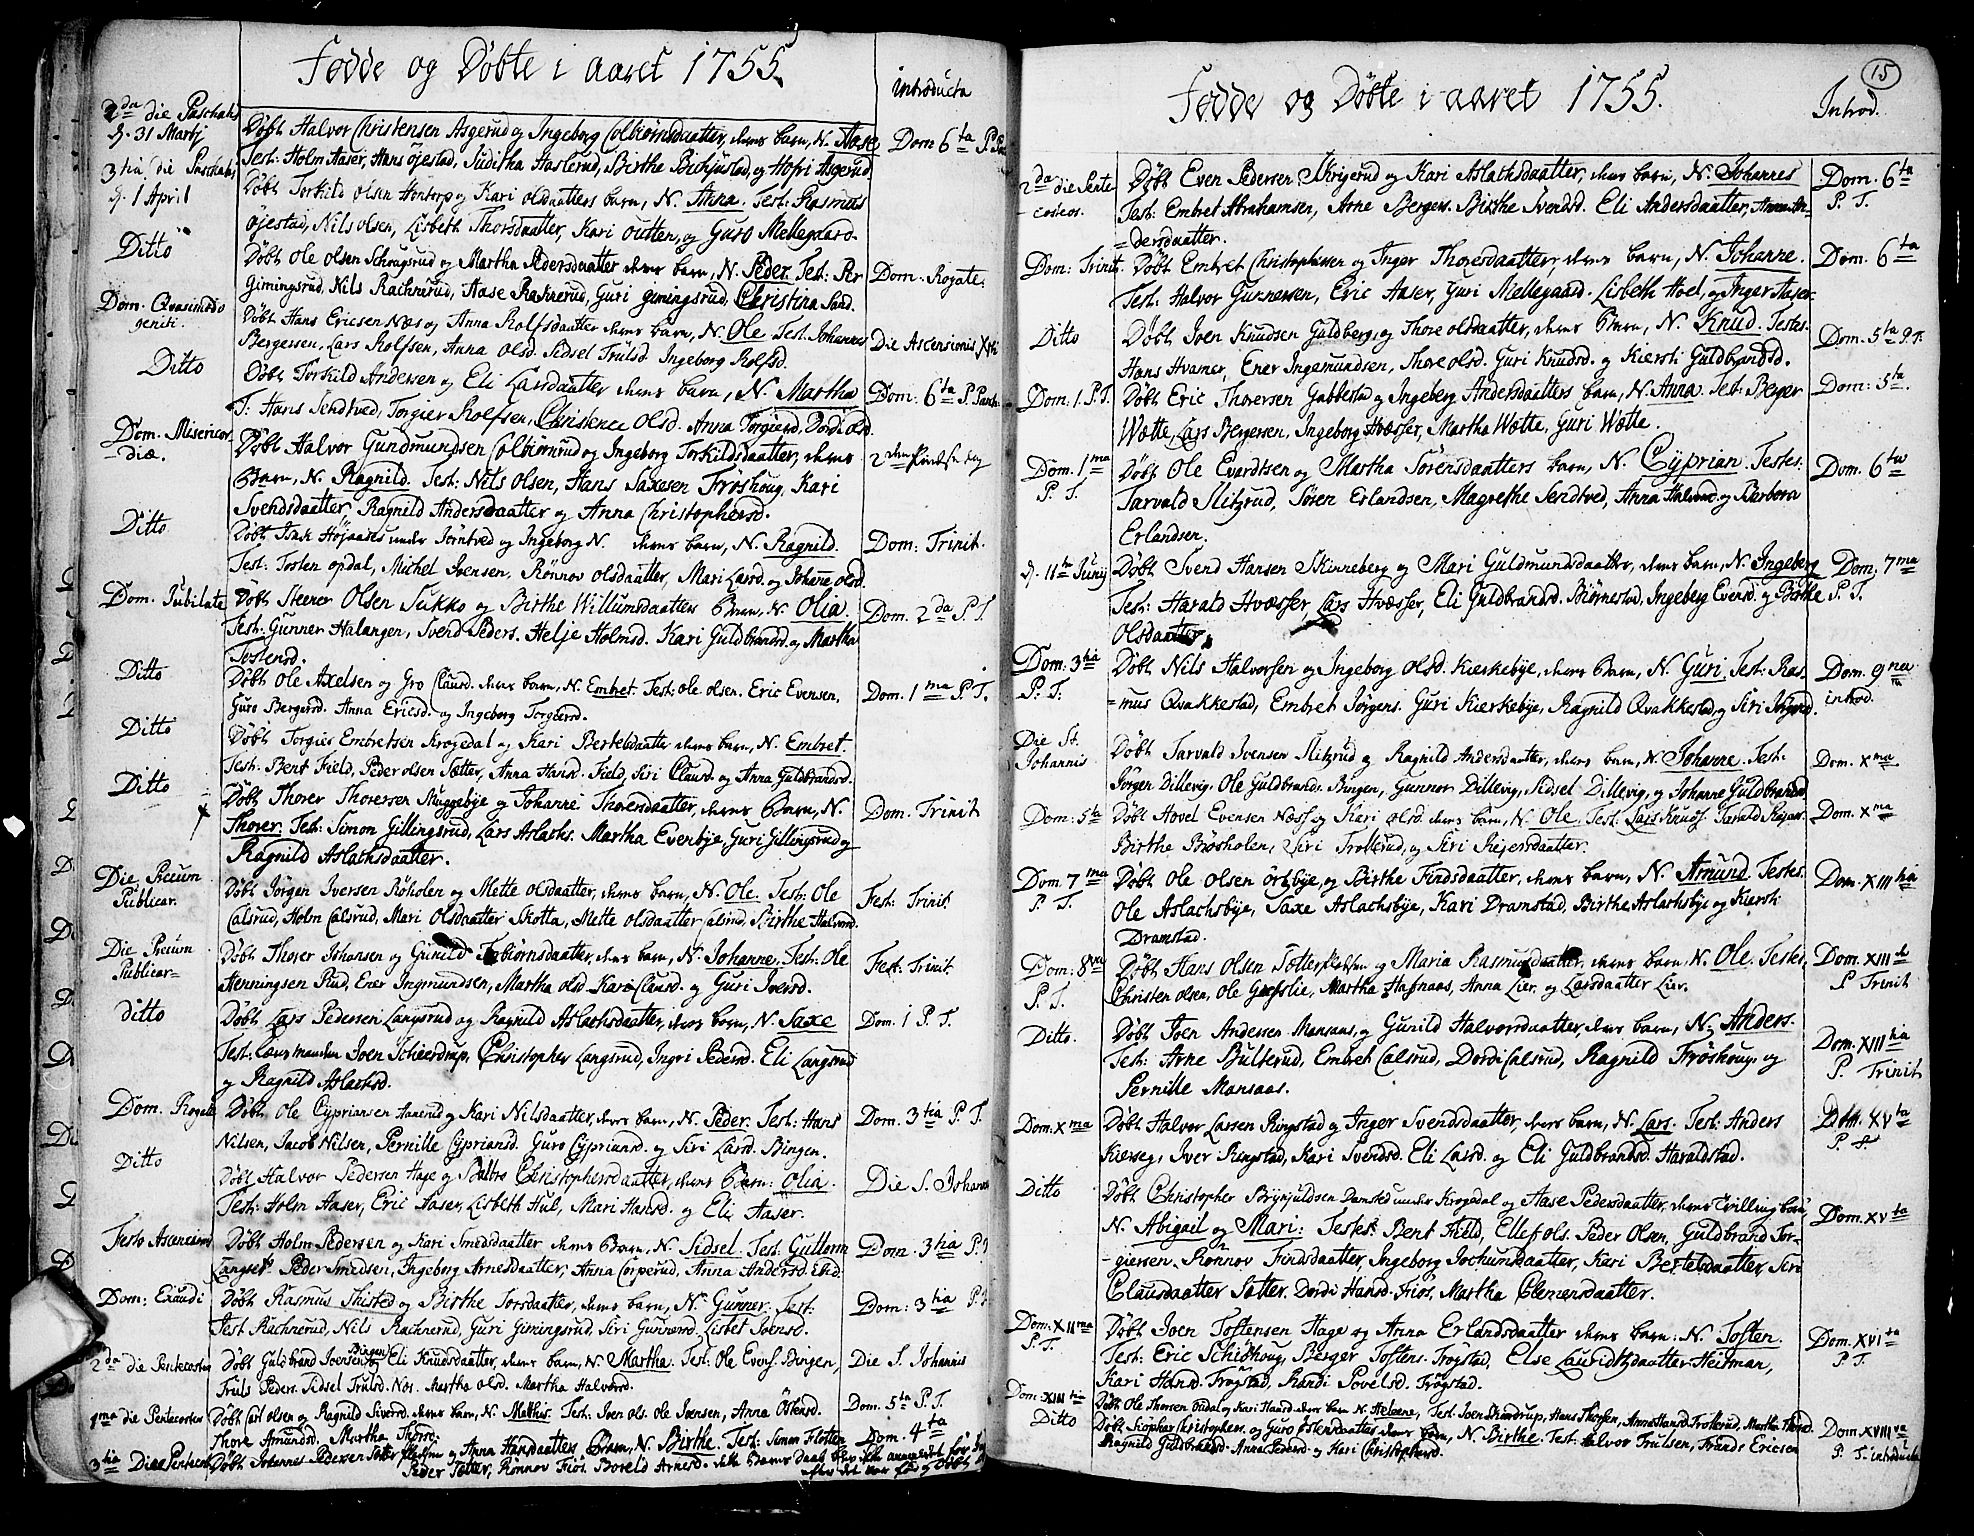 Fødde og Døbte i aaret 1755.
introducta
2da die Paschatis
d. 31 Martj
Døbt Halvor Christensen Asgerud og Ingeborg Colbiørnsdaatter, deres barn, N. Aase,
Dom 6ta P. Pas
Test: Holm Aaser, Hans Øjestad, Juditha Haslerud, Birthe Birkjustad, og Hofri Asgerud
3tia die Paschatis
d. 1 April
Døbt Torkild Olsen Hontorp og Kari olsdaatters barn, N. Anna. Test: Rasmus
Øjestad, Nils olsen, Lisbeth Thorsdaatter, Kari outten, og Guro Mellegaard.
Ditto
Døbt Ole olsen Schougsrud og Martha Pedersdaatter deres barn, N. Peder. Test: Per
Dom. Rogate.
Gimingsrud, Nils Rachnerud, Aase Rachnerud, Guri gimingsrud, Christina Sand.
Dom. Qvasimodo
geniti.
Døbt Hans Ericsen Næs og Anna Rolfsdaatter deres barn, N. Ole Test. Johannes
Bergersen, Lars Rolfsen, Anna Olsd. Sidsel Trulsd Ingeborg Rolfsd.
Die Ascensionis Xsti
Ditto
Døbt Torkild Andersen og Eli Larsdaatter deres barn, N. Martha
Dom: 6ta P. Pasch.
T: Hans Sendtved, Torgier Rolfsen, Christence Olsd. Anna Torgiersd, Dordi olsd.
Dom. Misericor-
diæ.
Døbt Halvor Gundmundsen Colbiørnrud og Ingeborg Torkildsdaatter, deres
2den Pindse dag
Barn, N. Ragnild. Test: Nils Olsen, Hans Saxesen Frøshoug, Kari
Svendsdaatter, Ragnild Andersdaatter og Anna Christophersd.
Ditto
Døbt Isak Højaases under Sørntved og Ingeborg N. deres barn, N. Ragnild.
Dom: Trinit.
Test: Tosten opdal, Michel Joensen, Rønnov Olsdaatter, Mari Larsd. og Johanne olsd.
Dom. Jubilate
Døbt Steener Olsen Sukko og Birthe Willumsdaatters Barn, N. Olia.
Dom. 2da P. T.
Test: Gunner Halangen, Svend Peders. Helje Holmsd. Kari Guldbrandsd. og Martha
Tostensd.
Ditto
Døbt Ole Axelsen og Gro Clausd. deres barn, N. Embret. Test: ole olsen. Eric Evensen,
Dom. 1ma P. T.
Guro Bergersd. Anna Ericsd. og Ingeborg Torgiersd.
Ditto
Døbt Torgies Embretsen Krogedal og Kari Bertelsdaatter deres barn, N. Embret.
Test: Bent Field, Peder olsen Sætter, Anna Hansd. Field, Siri Clausd. og Anna Guldbrandsd.
Ditto
Døbt Thorer Thoresen Muggebye og Johanne Thoresdaatter, deres Barn, N.
Dom. Trinit
Thorer. Test: Simon Gillingsrud, Lars Aslachs. Martha Evenbye, Guri Gillingsrud og
Ragnild Aslachsdaatter.
Die Precum
Publicar.
Døbt Jørgen Iversen Røholen og Mette olsdaatter, deres barn, N. Ole. Test: Ole
Fest: Trinit.
Calsrud, Holm Calsrud, Mari Olsdaatter Skotta, Mette olsdaatter Calsrud, Birthe Halvorsd.
Die Precum
Publicar=
Døbt Thorer Johansen og Gunild Torbiørnsdaatter, deres barn, N. Johanne. Test: Ole
Fest: Trinit
Henningsen Rud, Ener Ingmundsen, Martha olsd. Kari Clausd. og Guri Iversd.
ditto
Døbt Lars Pedersen Langsrud og Ragnild Aslachsdaatter, deres barn, N. Saxe
Dom. 1 P. T.
Test: Lænsmanden Joen Schierdrup, Christopher Langsrud, Ingri Pedersd. Eli Langsrud
og Ragnild Aslachsd.
Dom. Rogate
Døbt Ole Cypriansen Aanerud og Kari Nilsdaatter, deres barn, N. Peder. Test: Hans
Dom. 3tia P. T.
Nilsen, Jacob Nilsen, Pernille Cypriansd. Guro Cypriansd. og Siri Larsd. Bingen.
Ditto
Døbt Halvor Pedersen Hage og Christophersdaatter, deres Barn: Olia.
Die S. Johannis
Test: Holm Aaser, Eric Aaser, Lisbeth Hul, Mari Hansd. og Eli Aaser.
Festo Ascensionis
Døbt Holm Pedersen og Kari Smedsdaatter deres Barn, N. Sidsel. Test. Guttorm
Dom. 3tia P. T
Langset. Peder Smedsen, Ingeborg Arnesdaatter, Anna Corperud, Anna Andersd. Ehd.
Dom: Exaudi
Døbt Rasmus Thisted og Birthe Torsdaatter, deres barn, N. Gunner. Test:
Dom: 3tia P. T
Test Rachnerud, Nils Rachnerud, Guri Gimingsrud, Siri Gunnersd. Lisbet Joensd.
2da die Pentecostes
Døbt Guldbrand Joensen Bingen og Eli Knudsdaatter, deres barn, N. Martha. Test. Ole Evens. Bingen,
Die S. Johannis
Truls Peders. Sidsel Trulsd. Nos. Martha Olsd. Martha Halvorsd.
1ma die Pentecostes
Døbt Carl olsen og Ragnild Siversd. deres barn, N. Mathis. Test. Joen ols. Ole Joensen, Anna Østensd.
Dom. 5ta P. T.
Thore Amundsd. Martha Thorsd.
Dom. 4ta
3tia Die Pentecost
Døbt Johannes Pedersen Sætter og Anna Hansdaatters Barn, N. Birthe. Test. Simon Flotten
Peder Sætter, Rønnov Fiøs. Boreld Arnesd. dette Barns Daab blev ikke annammet før
efter det var før døbt

15
Fødde og Døbte i aaret 1755.
Introd.
2da die Pente
costes.
Døbt Even Pedersen Skrigerud og Kari Aslachsdaatter, deres barn, N. Johannes
Dom. 6ta
P. T.
Test: Embret Abrahamsen, Arne Bergers. Birthe Svendsd. Eli Andersdaatter, Anna An-
dersdaatter.
Dom: Trinit.
Døbt Embret Christophersen og Inger Thoresdaatter, deres barn, N. Johanne.
Dom. 6ta
Test: Halvor Gunnersen, Eric Aaser, Guri Mellegaard. Lisbeth Hoel, og Inger Aaser.
Ditto
Døbt Joen Knudsen Guldberg, og Thore olsdaatter, deres Barn, N. Knud. Testes.
Dom. 5ta P. T.
Hans Hvamer, Ener Ingemundsen, Thore olsd. Guri Knudsd. og Kiersti Guldbrandsd.
Dom: 1. P. T.
Døbt Eric Thoresen Gabbestad og Ingeberg Andersdaatters barn, N. Anna. Test: Berger
Dom: 5ta.
Wætte, Lars Bergersen, Ingeborg Hvæsser, Martha Wætte, Guri Wætte.
Dom. 1ma
P. T.
Døbt Ole Evardtsen og Martha Sørensdaatters barn, N. Cyprian. Testes.
Dom. 6ta
Tarvald Slitzrud, Søren Erlandsen, Magrethe Sendtved, Anna Halvorsd og Barbara
Erlandsen.
d. 11te Junij
Døbt Svend Hansen Skinneberg og Mari Guldmundsdaatter, deres barn, N. Ingeberg
Dom: 7ma
P. T.
Test: Harald Hvæsser, Lars Hvæsser, Eli Guldbrandsd. Biørnestad, Ingeberg Evensd. og Birthe
Olsdaatter.
Dom: 3tia
P. T.
Døbt Nils Halvorsen og Ingeborg olsd. Kierkebye, deres Barn, N. Guri. Test: Ras-
Dom. 9na
introd.
mus Qvakkestad, Embret Jørgens. Guri Kierkebye, Ragnild Qvakkestad og Siri
Die St.
Johannis.
Døbt Tarvald Ivensen Slitzrud og Ragnild Andersdaatter, deres barn, N. Johanne. Test.
Dom. Xma.
Jørgen Dillevig. Ole Guldbrands. Bingen, Gunnor Dillevig, Sidsel Dillevig, og Johanne Guldbrandsd.
Dom: 5ta
Døbt Hovel Evensen Næss og Kari olsd. deres barn, N. Ole. Test. Lars Knuds. Tarald Rejers.
Dom. Xma
Birthe Brøsholen, Siri Trollerud, og Siri Rejersdaatter.
Dom. 7ma
P. T.
Døbt Ole Olsen Ørtebye, og Birthe Findsdaatter, deres barn, N. Amund. Testes.
Dom. XIIItia
Ole Aslachsbye, Saxe Aslachsbye, Kari Dramstad, Birthe Aslachsbye og Kiersti
Dramstad.
Dom: 8va
P. T.
Døbt Hans Olsen og Maria Rasmusdaatter, deres barn, N. Ole. Testes.
Dom. XIIItia
P Trinit
Christen olsen, Ole Græslie, Martha Hafnaas, Anna Lier, og Larsdaatter Lier.
Ditto.
Døbt Joen Andersen Mansaas, og Gunild Halvorsdaatter, deres barn, N. Anders.
Dom. XIIItia
P. Trinit
Test: Arne Bulterud, Embret Calsrud, Dordi Calsrud, Ragnild Frøshoug, og
Pernille Mansaas.
Dom. Xma
Døbt Halvor Larsen Ringstad og Inger Svendsdaatter, deres barn, N. Lars. Test: Anders
Dom. XVta
P. T
Kierseg, Iver Ringstad, Kari Svendsd. Eli Larsd. og Eli Guldbrandsd. Haraldstad.
Ditto
Døbt Christopher Brynjuldsen Damsted under Krogedal og Aase Pedersdaatter, deres Tvilling barn,
Dom. XVta
N. Abigail og Mari: Testes. Bent Field, Ellef ols. Peder Olsen, Guldbrand Tor-
giersen. Rønnov Findsdaatter, Ingeborg Jochumsdaatter, Kari Bertelsdaatter, Siri
Clausdaatter Sætter. Dordi Hansd. Fiøs, Martha Clemensdaatter.
Dom. XIIma
P. T.
Døbt Joen Tostensen Hage og Anna Erlandsdaatter deres barn: N. Tosten.
Dom. XVIta
P. T.
Test: Eric Schiøhoug, Berger Tostens. Frogstad, Else Lauridtzdaatter Heitman,
Kari Hansd. Frogstad, Randi Povelsd. Frøgstad.
Dom: XIIItia
Døbt Ole Thorsen Opdal og Kari Haard. deres barn N. Helene, Test. Joen Skindrup, Hans Thorsen, Anna Hansd. Trollerud, Martha Thorsd.
Ditto
Døbt Kiøpher Christophers. og Guro Østensdaatter deres barn, N. Birthe. Test. Halvor Trulsen, Trunds Ericsen
Dom XVIIIva
P. T. introducta
Ragnild Guldbrandsd. Anna Pedersd. og Kari Christophersd.